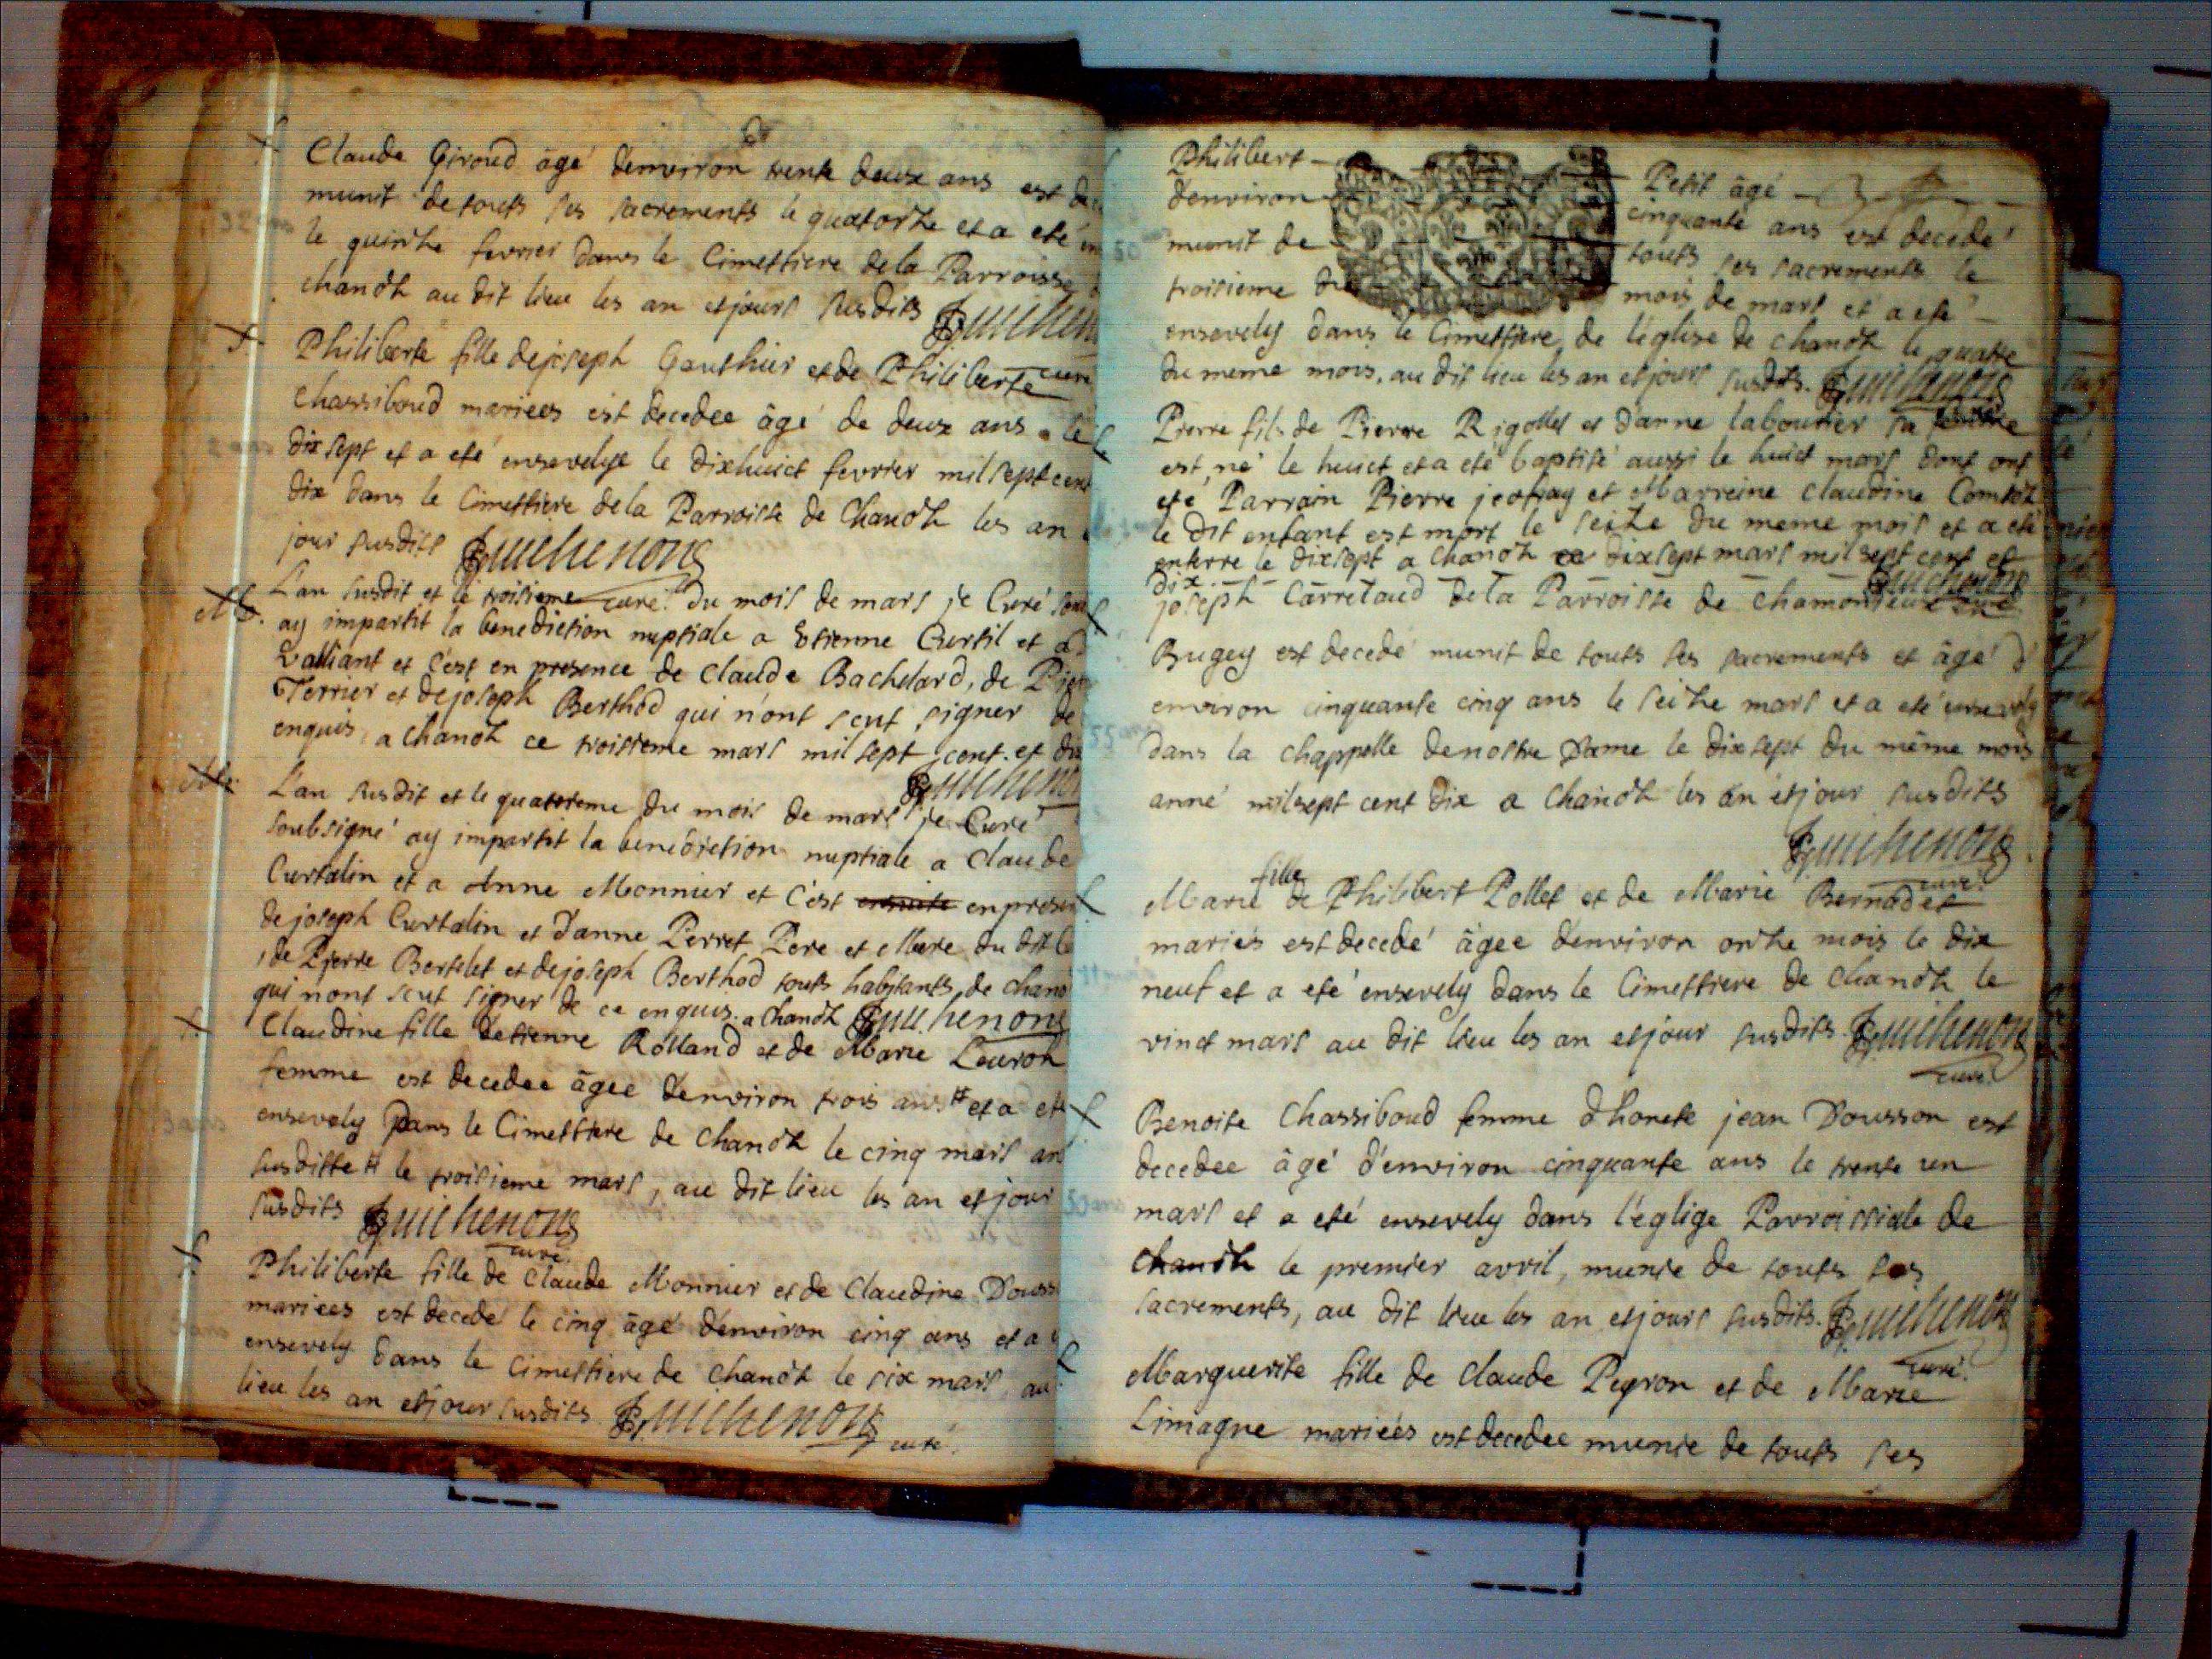 Claude Giroud âgé d'environ trente deux ans est
munit de touts ses sacrements le quatorze et a eté
le quinze fevrier dans le Cimettiere de la Parroisse
chanoz au dit lieu les an et jours susdits Guichenon
curé
Philiberte fille de joseph Gauthier et de Philiberte
Chassiboud mariees est decedee âgé de deux ans le
dix sept et a eté ensevelye le dixhuict fevrier mil sept cent
dix dans le Cimettiere de la Parroisse de Chanoz les an
jour susdits Guichenon
curé
L'an susdit et le troisieme du mois de mars je Curé
ay impartit la benediction nuptiale a Etienne Curtil et
Valliant et c'est en presence de Claude Bachelard, de
Terrier et de joseph Berthod qui n'ont sçut signer de
enquis a chanoz ce troisieme mars mil sept cent et dix
Guichenon
L'an susdit et le quatrieme du mois de mars je Curé
soubsigné ay impartit la benediction nuptiale a Claude
Curtalin et a Anne Monnier et c'est en
de joseph Curtalin et d'anne Perret Pere et Mere du dit
, de Pierre Bertelet et de joseph Berthod touts habitants de
qui n'ont sçut signer de ce enquis a chanoz Guichenon
Claudine fille d'etienne Rolland et de Marie
femme est decedee âgee d'environ trois ans # et a
ensevely Dans le Cimettiere de Chanoz le cinq mars
susditte # le troisieme mars, au dit lieu les an et jour
susdits Guichenon
curé
Philiberte fille de Claude Monnier et de Claudine
mariees est decedé le cinq âgé d'environ cinq ans et a
ensevely dans le Cimettiere de Chanoz le six mars au
lieu les an et jour susdits Guichenon
curé
Philibert Petit âgé
d'environ cinquante ans est decedé
munit de touts ses sacrements le
troisieme du mois de mars et a eté
ensevely dans le Cimettiere de l'église de chanoz le quatre
du meme mois, au dit lieu les an et jours susdits. Guichenon
Pierre fils de Pierre Rigollet et d'anne labourier sa femme
est né le huict et a eté baptisé aussi le huict mars dont ont
eté Parrain Pierre jeofray et Marreine Claudine
le dit enfant est mort le seize du meme mois et a eté
enterre le dixsept a Chanoz ce dixsept mars mil sept cent et
dix Guichenon
joseph Carretaud de la Parroisse de
Bugey est decedé munit de touts ses sacrements et âgé d'
environ cinquante cinq ans le seize mars et a eté ensevely
dans la chappelle de nostre Dame le dix sept du même mois
anné mil sept cent dix a Chanoz les an et jour susdits
Guichenon
curé
Marie fille de Philibert Pollet et de Marie Bernadet
mariés est decedé âgee d'environ onze mois le dix
neuf et a eté ensevely dans le Cimettiere de Chanoz le
vinct mars au dit lieu les an et jour susdits Guichenon
curé
Benoite Chassiboud femme d'honete jean Dousson est
decedee âgé d'environ cinquante ans le trente un
mars et a eté ensevely dans l'églige Parroissiale de
chanoz le premier avril, munie de touts ses
sacrements, au dit lieu les an et jours susdits. Guichenon
curé
Marguerite fille de Claude Peyron et de Marie
Limagne mariées est decedee munie de touts ses